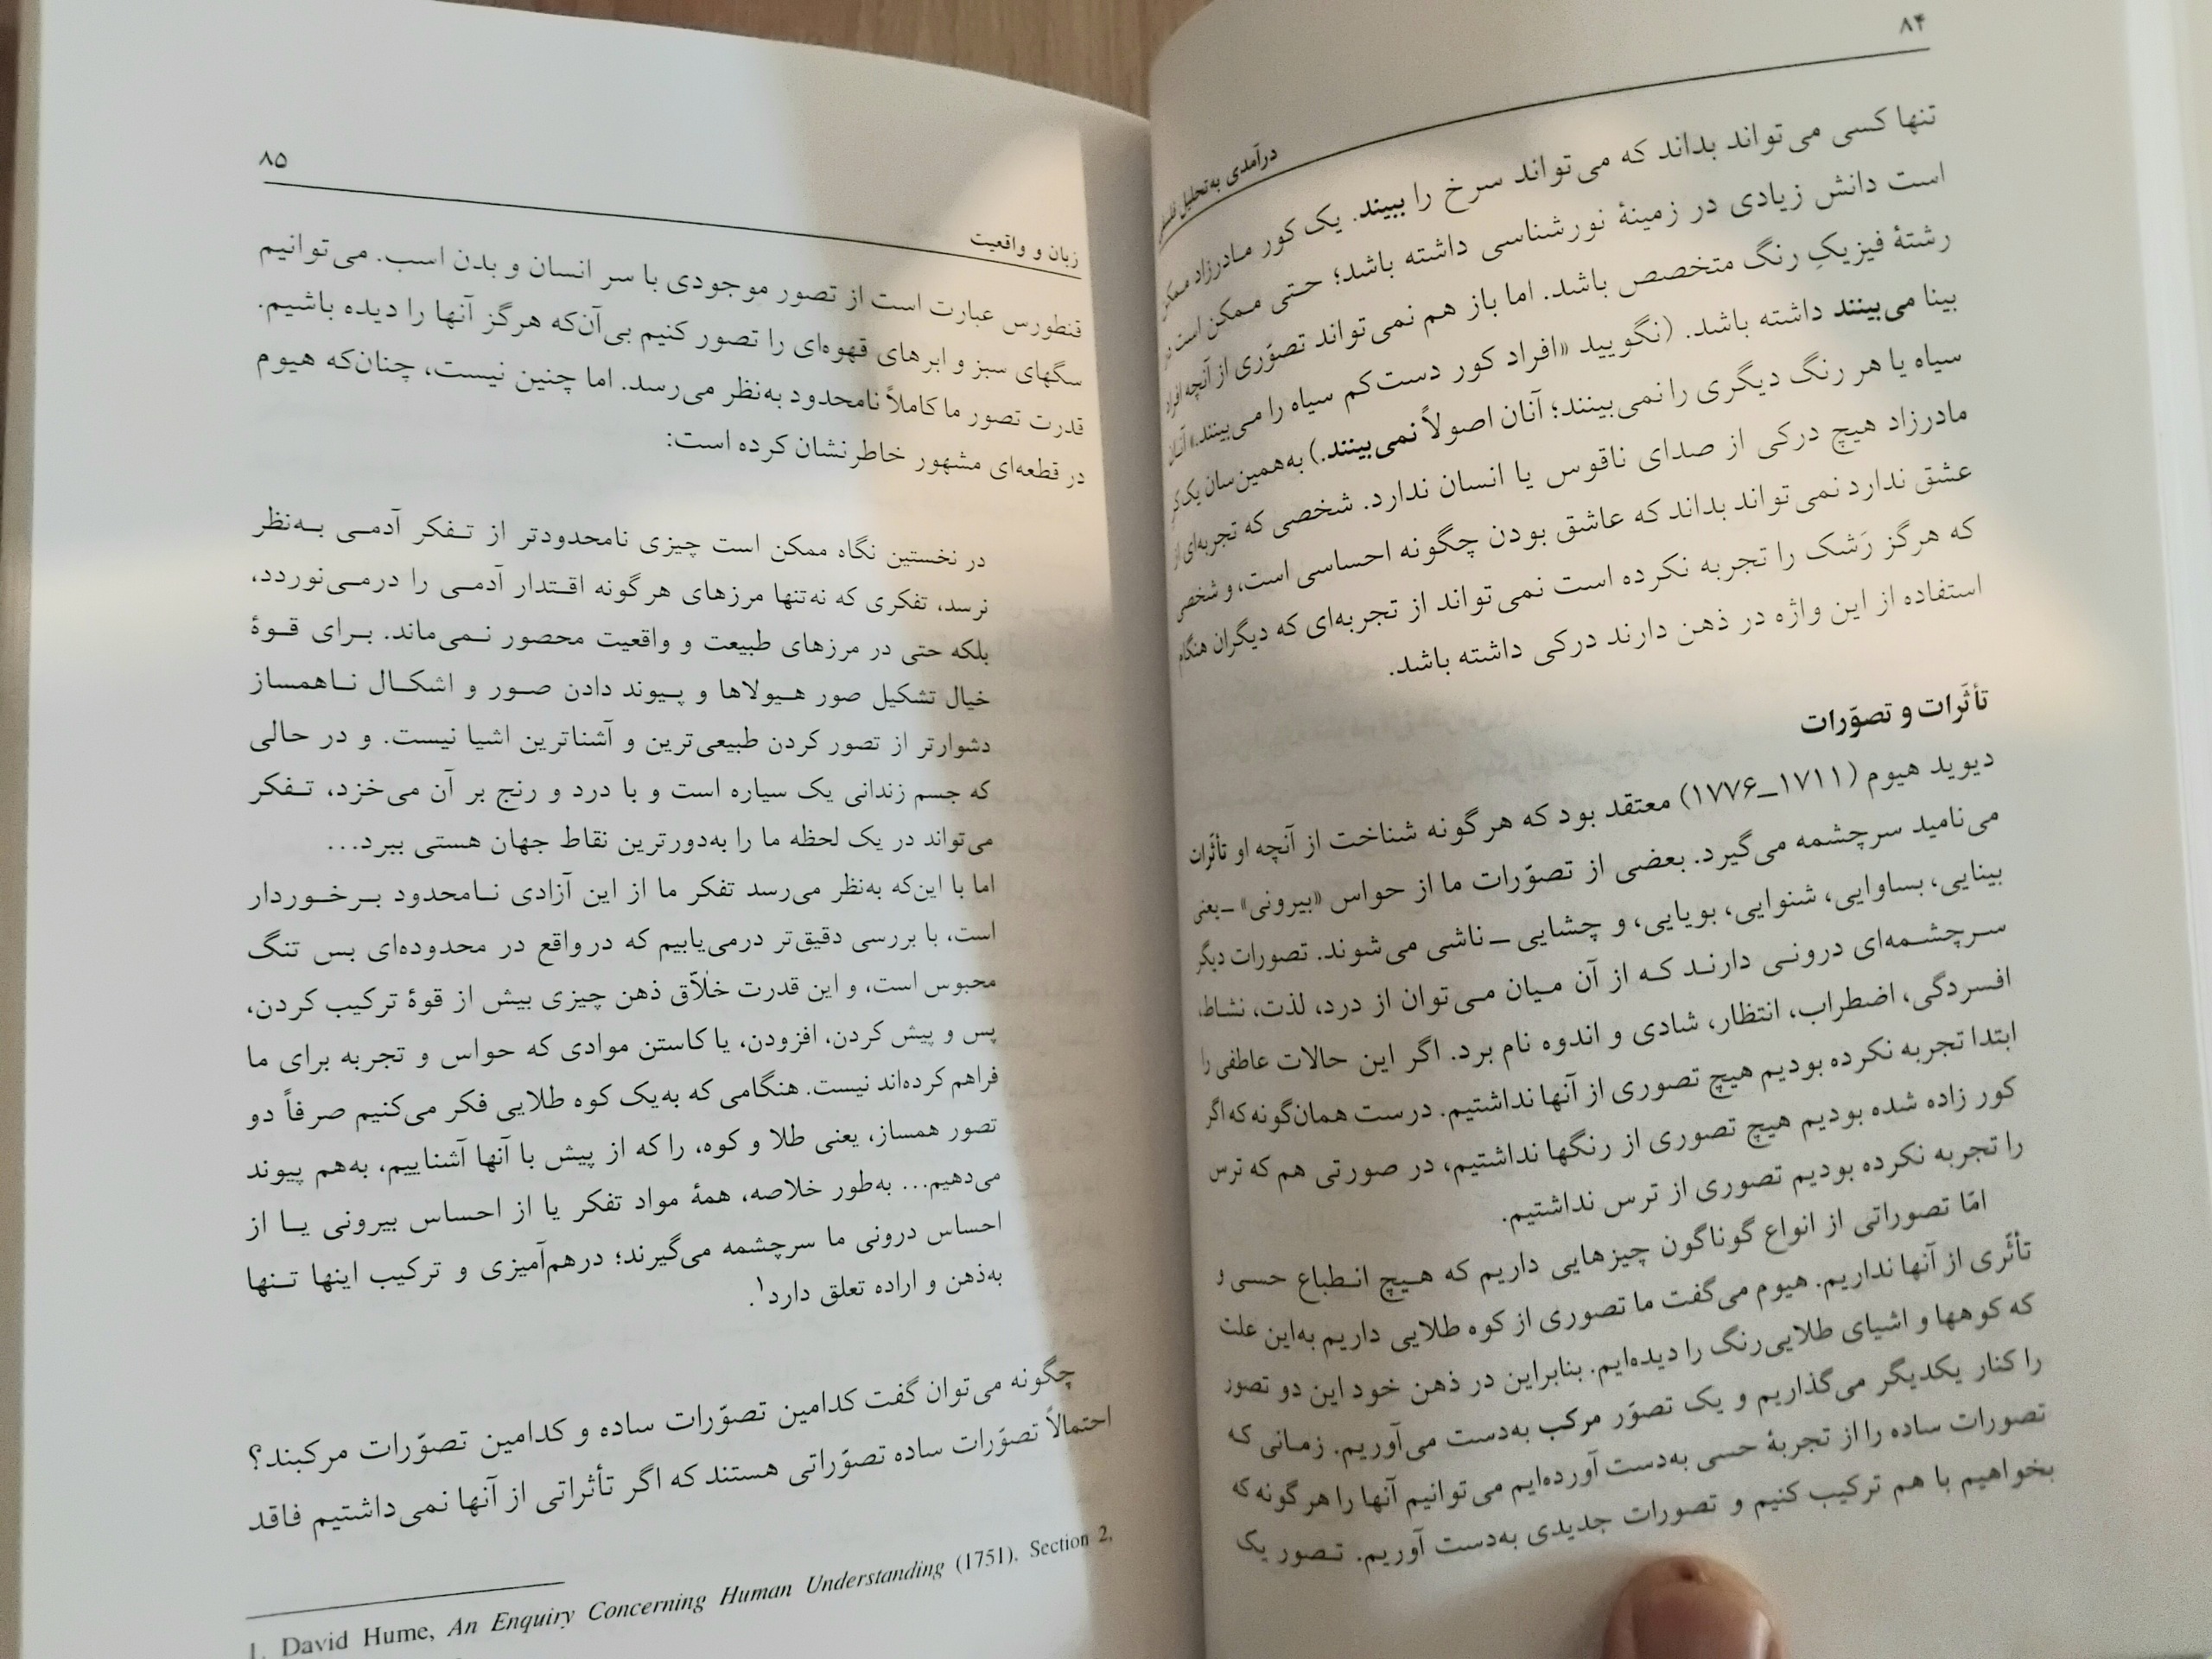 ۸۴
درآمدی به تحلیل
تنها کسی می‌تواند بداند که می‌تواند سرخ را ببیند. یک کور مادرزاد ممکن
است دانش زیادی در زمینهٔ نورشناسی داشته باشد؛ حتی ممکن است در
رشتهٔ فیزیکِ رنگ متخصص باشد. اما باز هم نمی‌تواند تصوّری از آنچه افراد
بینا می‌بینند داشته باشد. (نگویید «افراد کور دست‌کم سیاه را می‌بینند.» آنان
سیاه یا هر رنگ دیگری را نمی‌بینند؛ آنان اصولاً نمی‌بینند.) به‌همین‌سان یک
مادرزاد هیچ درکی از صدای ناقوس یا انسان ندارد. شخصی که تجربه‌ای از
عشق ندارد نمی‌تواند بداند که عاشق بودن چگونه احساسی است، و شخصی
که هرگز رَشک را تجربه نکرده است نمی‌تواند از تجربه‌ای که دیگران هنگام
استفاده از این واژه در ذهن دارند درکی داشته باشد.
تأثّرات و تصوّرات
دیوید هیوم (۱۷۱۱_۱۷۷۶) معتقد بود که هرگونه شناخت از آنچه او تأثّرات
می‌نامید سرچشمه می‌گیرد. بعضی از تصوّرات ما از حواس «بیرونی» _یعنی
بینایی، بساوایی، شنوایی، بویایی، و چشایی _ ناشی می‌شوند. تصورات دیگر
سرچشمه‌ای درونی دارند که از آن میان می‌توان از درد، لذت، نشاط،
افسردگی، اضطراب، انتظار، شادی و اندوه نام برد. اگر این حالات عاطفی را
ابتدا تجربه نکرده بودیم هیچ تصوری از آنها نداشتیم. درست همان‌گونه که اگر
کور زاده شده بودیم هیچ تصوری از رنگها نداشتیم، در صورتی هم که ترس
را تجربه نکرده بودیم تصوری از ترس نداشتیم.
امّا تصوراتی از انواع گوناگون چیزهایی داریم که هیچ انطباع حسی و
تأثّری از آنها نداریم. هیوم می‌گفت ما تصوری از کوه طلایی داریم به‌این علت
که کوهها و اشیای طلایی‌رنگ را دیده‌ایم. بنابراین در ذهن خود این دو تصور
را کنار یکدیگر می‌گذاریم و یک تصوّر مرکب به‌دست می‌آوریم. زمانی که
تصورات ساده را از تجربهٔ حسی به‌دست آورده‌ایم می‌توانیم آنها را هرگونه که
بخواهیم با هم ترکیب کنیم و تصورات جدیدی به‌دست آوریم. تصور یک
۸۵
زبان و واقعیت
قنطورس عبارت است از تصور موجودی با سر انسان و بدن اسب. می‌توانیم
سگهای سبز و ابرهای قهوه‌ای را تصور کنیم بی‌آن‌که هرگز آنها را دیده باشیم.
قدرت تصور ما کاملاً نامحدود به‌نظر می‌رسد. اما چنین نیست، چنان‌که هیوم
در قطعه‌ای مشهور خاطرنشان کرده است:
در نخستین نگاه ممکن است چیزی نامحدودتر از تفکر آدمی به‌نظر
نرسد، تفکری که نه‌تنها مرزهای هرگونه اقتدار آدمی را درمی‌نوردد،
بلکه حتی در مرزهای طبیعت و واقعیت محصور نمی‌ماند. برای قوهٔ
خیال تشکیل صور هیولاها و پیوند دادن صور و اشکال ناهمساز
دشوارتر از تصور کردن طبیعی‌ترین و آشناترین اشیا نیست. و در حالی
که جسم زندانی یک سیاره است و با درد و رنج بر آن می‌خزد، تفکر
می‌تواند در یک لحظه ما را به‌دورترین نقاط جهان هستی ببرد...
اما با این‌که به‌نظر می‌رسد تفکر ما از این آزادی نامحدود برخوردار
است، با بررسی دقیق‌تر درمی‌یابیم که درواقع در محدوده‌ای بس تنگ
محبوس است، و این قدرت خلاّق ذهن چیزی بیش از قوهٔ ترکیب کردن،
پس و پیش کردن، افزودن، یا کاستن موادی که حواس و تجربه برای ما
فراهم کرده‌اند نیست. هنگامی که به‌یک کوه طلایی فکر می‌کنیم صرفاً دو
تصور همساز، یعنی طلا و کوه، را که از پیش با آنها آشناییم، به‌هم پیوند
می‌دهیم... به‌طور خلاصه، همهٔ مواد تفکر یا از احساس بیرونی یا از
احساس درونی ما سرچشمه می‌گیرند؛ درهم‌آمیزی و ترکیب اینها تنها
به‌ذهن و اراده تعلق دارد۱.
چگونه می‌توان گفت کدامین تصوّرات ساده و کدامین تصوّرات مرکبند؟
احتمالاً تصوّرات ساده تصوّراتی هستند که اگر تأثراتی از آنها نمی‌داشتیم فاقد
1. David Hume, An Enquiry Concerning Human Understanding (1751), Section 2,